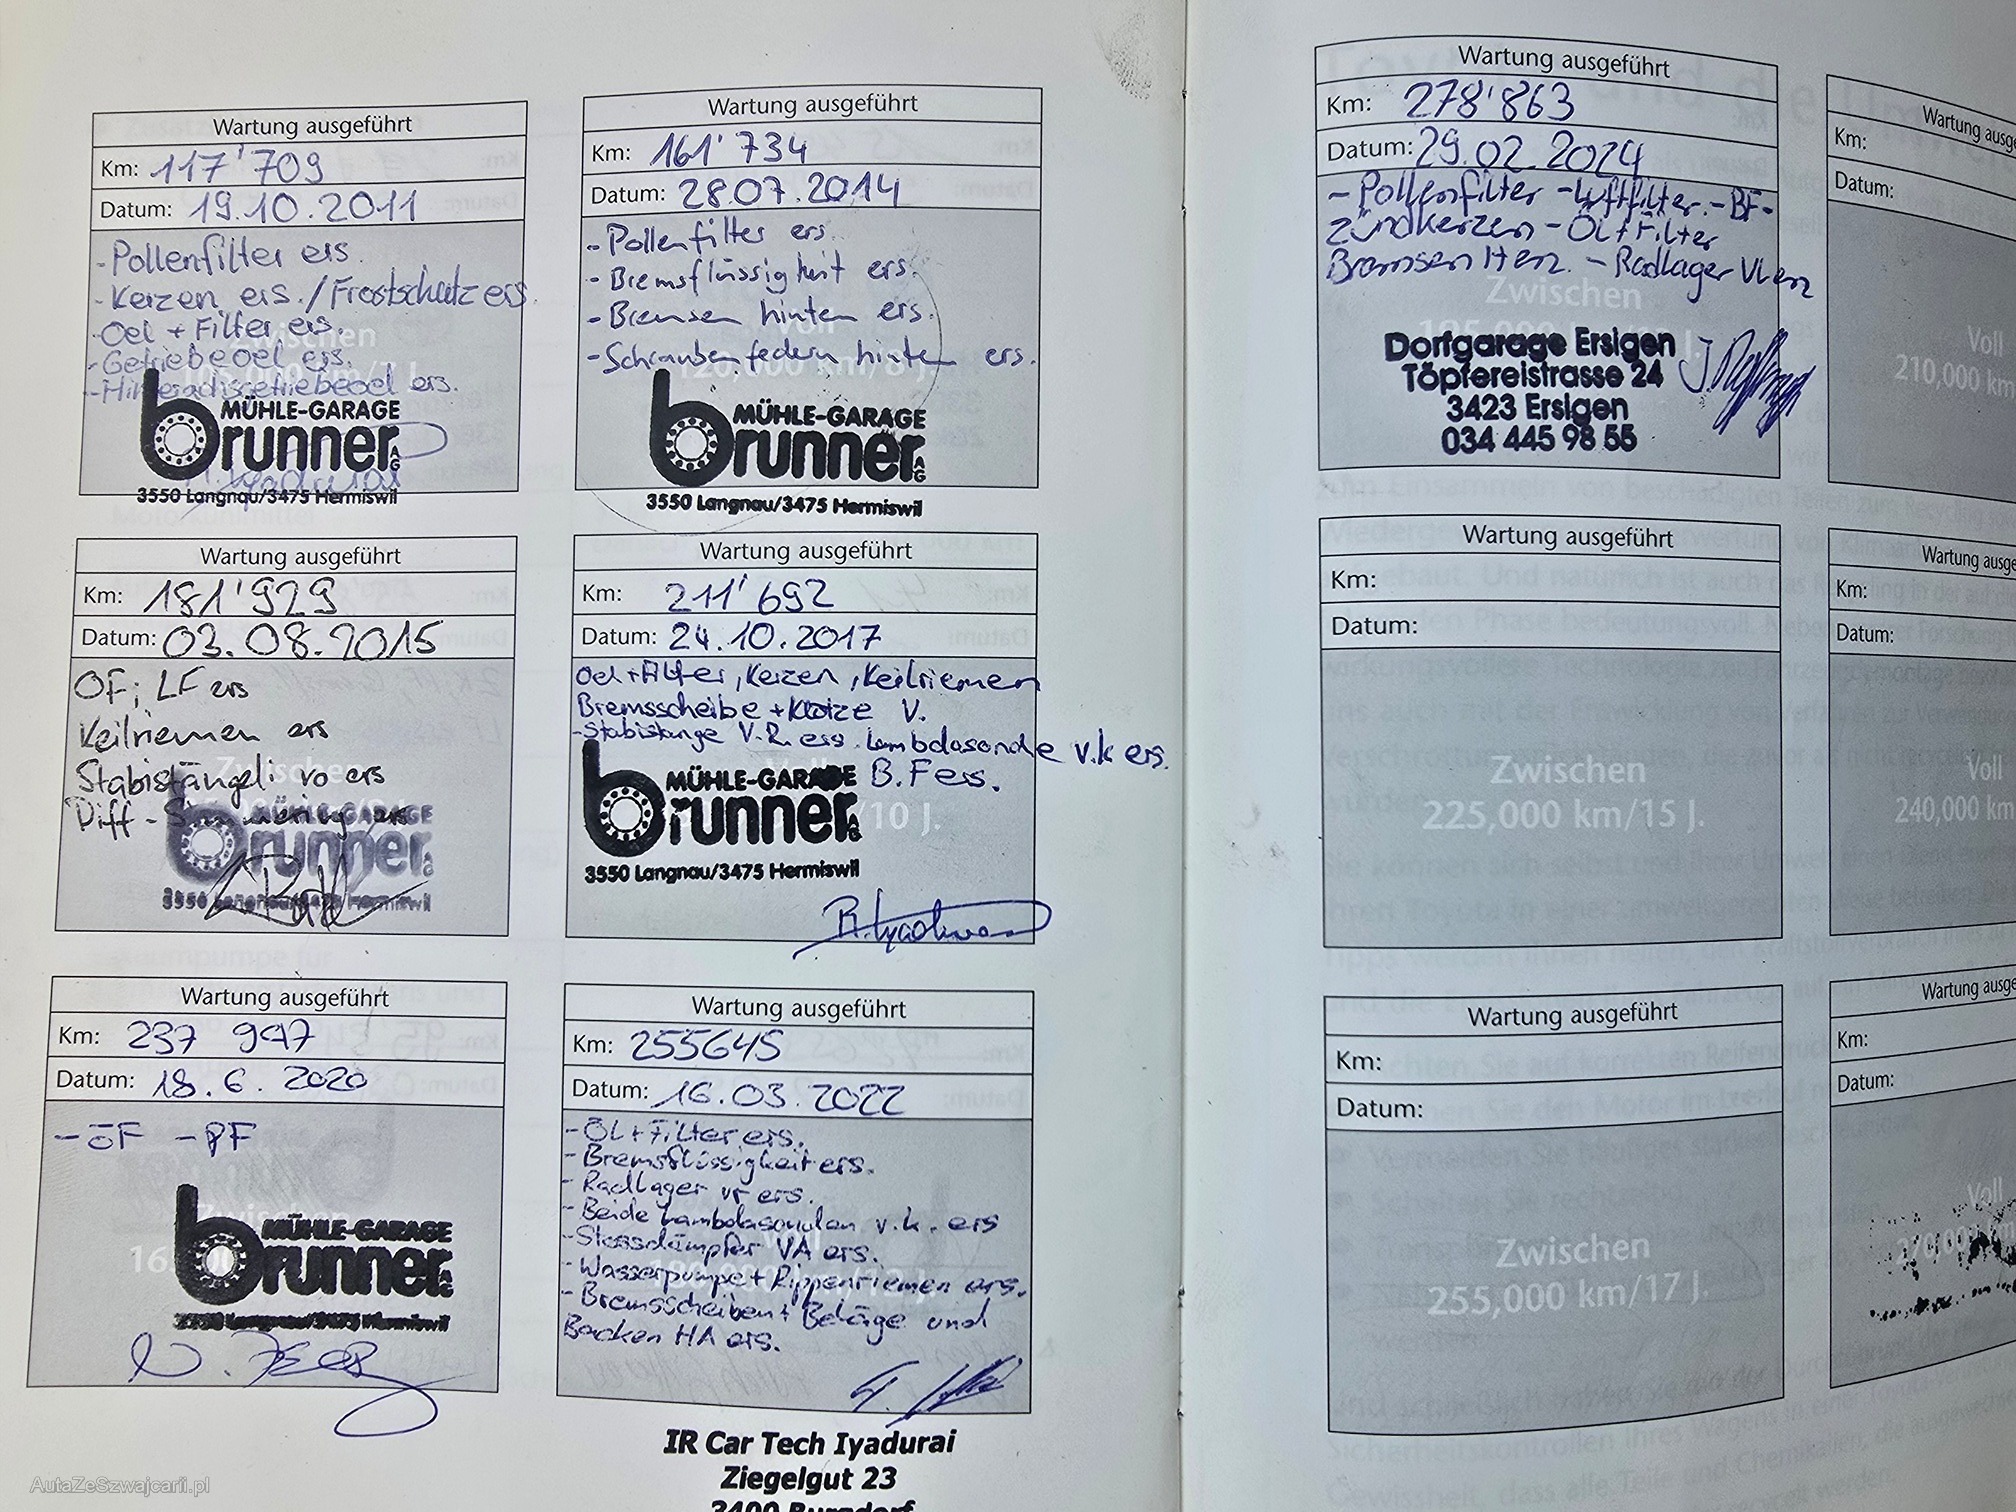 Wartung ausgeführt
Km: 117'709
Datum: 19.10.2011
-Pollenfilter ers.
-Kerzen ers./Frostschutz ers.
-Oel + Filter ers.
-Getriebeoel ers.
-Hinterachsgetriebeoel ers.
MÜHLE-GARAGE
brunner AG
3550 Langnau/3475 Hermiswil
Wartung ausgeführt
Km: 161'734
Datum: 28.07.2014
-Pollenfilter ers.
-Bremsflüssigkeit ers.
-Bremsen hinten ers.
-Schraubenfedern hinten ers.
Voll
120,000 km/8 J.
MÜHLE-GARAGE
brunner AG
3550 Langnau/3475 Hermiswil
Wartung ausgeführt
Km: 181'929
Datum: 03.08.2015
OF; LF ers
Keilriemen ers
Stabistängeli vo ers
Diff - ers
MÜHLE-GARAGE
brunner
3550 Langnau/3475 Hermiswil
Wartung ausgeführt
Km: 211'692
Datum: 24.10.2017
Oel+Filter, Kerzen, Keilriemen
Bremsscheibe + Klötze V.
-Stabistange V.R. ers. Lambdasonde v.k ers.
B.Fers.
MÜHLE-GARAGE
brunner AG
/10 J.
3550 Langnau/3475 Hermiswil
Wartung ausgeführt
Km: 237 997
Datum: 18.6.2020
-ÖF -PF
Zwischen
MÜHLE-GARAGE
brunner AG
3550 Langnau/3475 Hermiswil
Wartung ausgeführt
Km: 255645
Datum: 16.03.2022
-ÖL+Filter ers.
-Bremsflüssigkeit ers.
-Radlager vr ers.
-Beide Lambdasonden v.k. ers
-Stossdämpfer VA ers.
-Wasserpumpe + Rippenriemen ers.
-Bremsscheiben + Beläge und
Backen HA ers.
IR Car Tech Iyadurai
Ziegelgut 23
3400 Burgdorf
Wartung ausgeführt
Km: 278'863
Datum: 29.02.2024
-Pollenfilter -Luftfilter -BF-
Zündkerzen -Öl+Filter
Bremsen H erz. -Radlager VL erz
Zwischen
Dorfgarage Ersigen
Töpfereistrasse 24
3423 Ersigen
034 445 98 55
Wartung ausgeführt
Km:
Datum:
Zwischen
225,000 km/15 J.
Wartung ausgeführt
Km:
Datum:
Zwischen
255,000 km/17 J.
Wartung ausge
Km:
Datum:
Voll
210,000 km
Wartung ausge
Km:
Datum:
Voll
240,000 km
Wartung ausge
Km:
Datum:
Voll
270,000 km
AutaZeSzwajcarii.pl